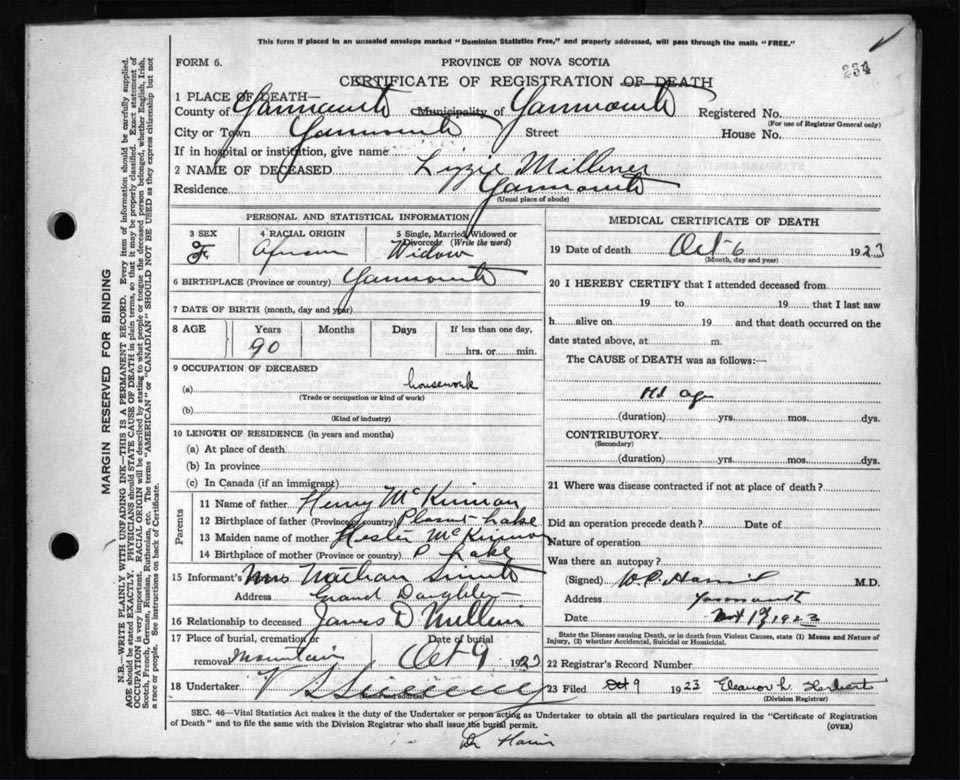 This form if placed in an unsealed envelope marked "Dominion Statistics Free," and properly addressed, will pass through the mails "FREE."
FORM 6.
PROVINCE OF NOVA SCOTIA
234
CERTIFICATE OF REGISTRATION OF DEATH
1 PLACE OF DEATH—
County of Yarmouth Municipality of Yarmouth Registered No.
(For use of Registrar General only)
City or Town Yarmouth Street House No.
If in hospital or institution, give name
2 NAME OF DECEASED Lizzie Millener
Residence Yarmouth
(Usual place of abode)
PERSONAL AND STATISTICAL INFORMATION
3 SEX 4 RACIAL ORIGIN 5 Single, Married, Widowed or Divorced (Write the word)
F. African Widow
6 BIRTHPLACE (Province or country) Yarmouth
7 DATE OF BIRTH (month, day and year)
8 AGE Years Months Days If less than one day,
90 hrs. or min.
9 OCCUPATION OF DECEASED
(a) housework
(Trade or occupation or kind of work)
(b)
(Kind of industry)
10 LENGTH OF RESIDENCE (in years and months)
(a) At place of death
(b) In province
(c) In Canada (if an immigrant)
Parents
11 Name of father Henry McKinnon
12 Birthplace of father (Province or country) Lake
13 Maiden name of mother Hester McKinnon
14 Birthplace of mother (Province or country) P Lake
15 Informant's Mrs Nathan
Address Grand Daughter
16 Relationship to deceased James D
17 Place of burial, cremation or removal Mountain
Date of burial Oct 9 1923
18 Undertaker V S Sweeney
MEDICAL CERTIFICATE OF DEATH
19 Date of death Oct 6 1923
(Month, day and year)
20 I HEREBY CERTIFY that I attended deceased from
19 to 19 that I last saw
h alive on 19 and that death occurred on the
date stated above, at m.
The CAUSE OF DEATH was as follows:—
Old age
(duration) yrs. mos. dys.
CONTRIBUTORY
(Secondary)
(duration) yrs. mos. dys.
21 Where was disease contracted if not at place of death?
Did an operation precede death? Date of
Nature of operation
Was there an autopsy?
(Signed) M.D.
Address Yarmouth
Date 1923
State the Disease causing Death, or in death from Violent Causes, state (1) Means and Nature of Injury, (2) whether Accidental, Suicidal or Homicidal.
22 Registrar's Record Number
23 Filed Oct 9 1923 Eleanor L Herbert
(Division Registrar)
SEC. 46—Vital Statistics Act makes it the duty of the Undertaker or person acting as Undertaker to obtain all the particulars required in the "Certificate of Registration
of Death" and to file the same with the Division Registrar who shall issue the burial permit.
(OVER)
Dr
MARGIN RESERVED FOR BINDING
N.B.—WRITE PLAINLY WITH UNFADING INK—THIS IS A PERMANENT RECORD. Every item of information should be carefully supplied.
AGE should be stated EXACTLY. PHYSICIANS should STATE CAUSE OF DEATH in plain terms, so that it may be properly classified. Exact statement of
OCCUPATION is very important. RACIAL ORIGIN will be described by stating to what people or tongue the deceased person belonged, whether English, Irish,
Scotch, French, German, Russian, Ruthenian, etc. The terms "AMERICAN" or "CANADIAN" SHOULD NOT BE USED as they express citizenship but not
a race or people. See instructions on back of Certificate.